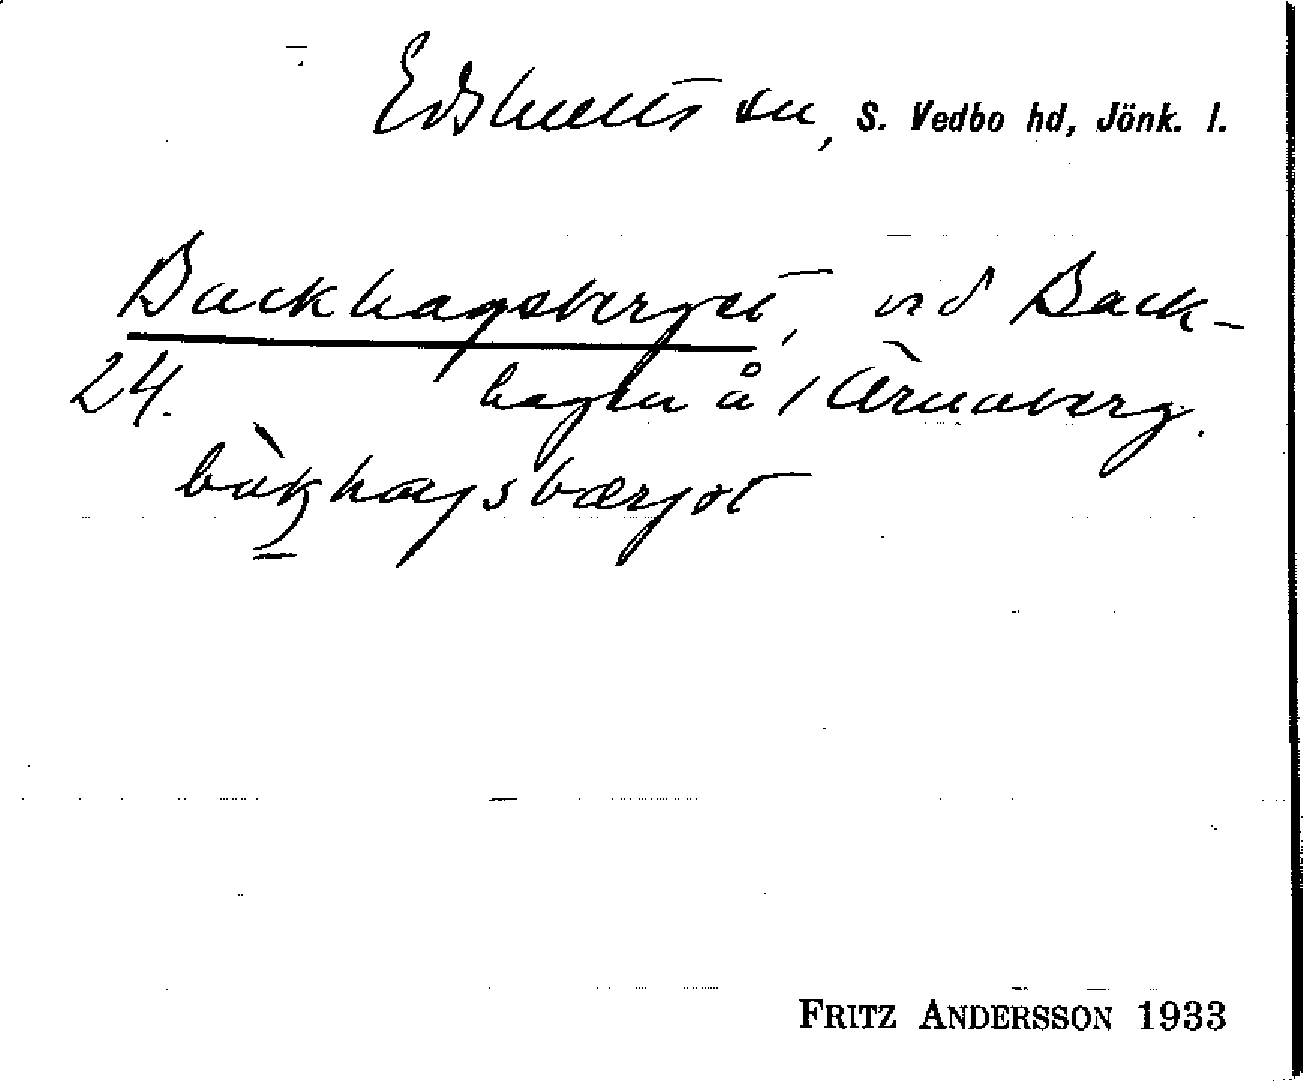 Edshults sn, S. Vedbo hd, Jönk. l.
Backhagsberget, vid Back-
24. hagen å /Arnaberg.
bàkhagsbærjət
FRITZ ANDERSSON 1933